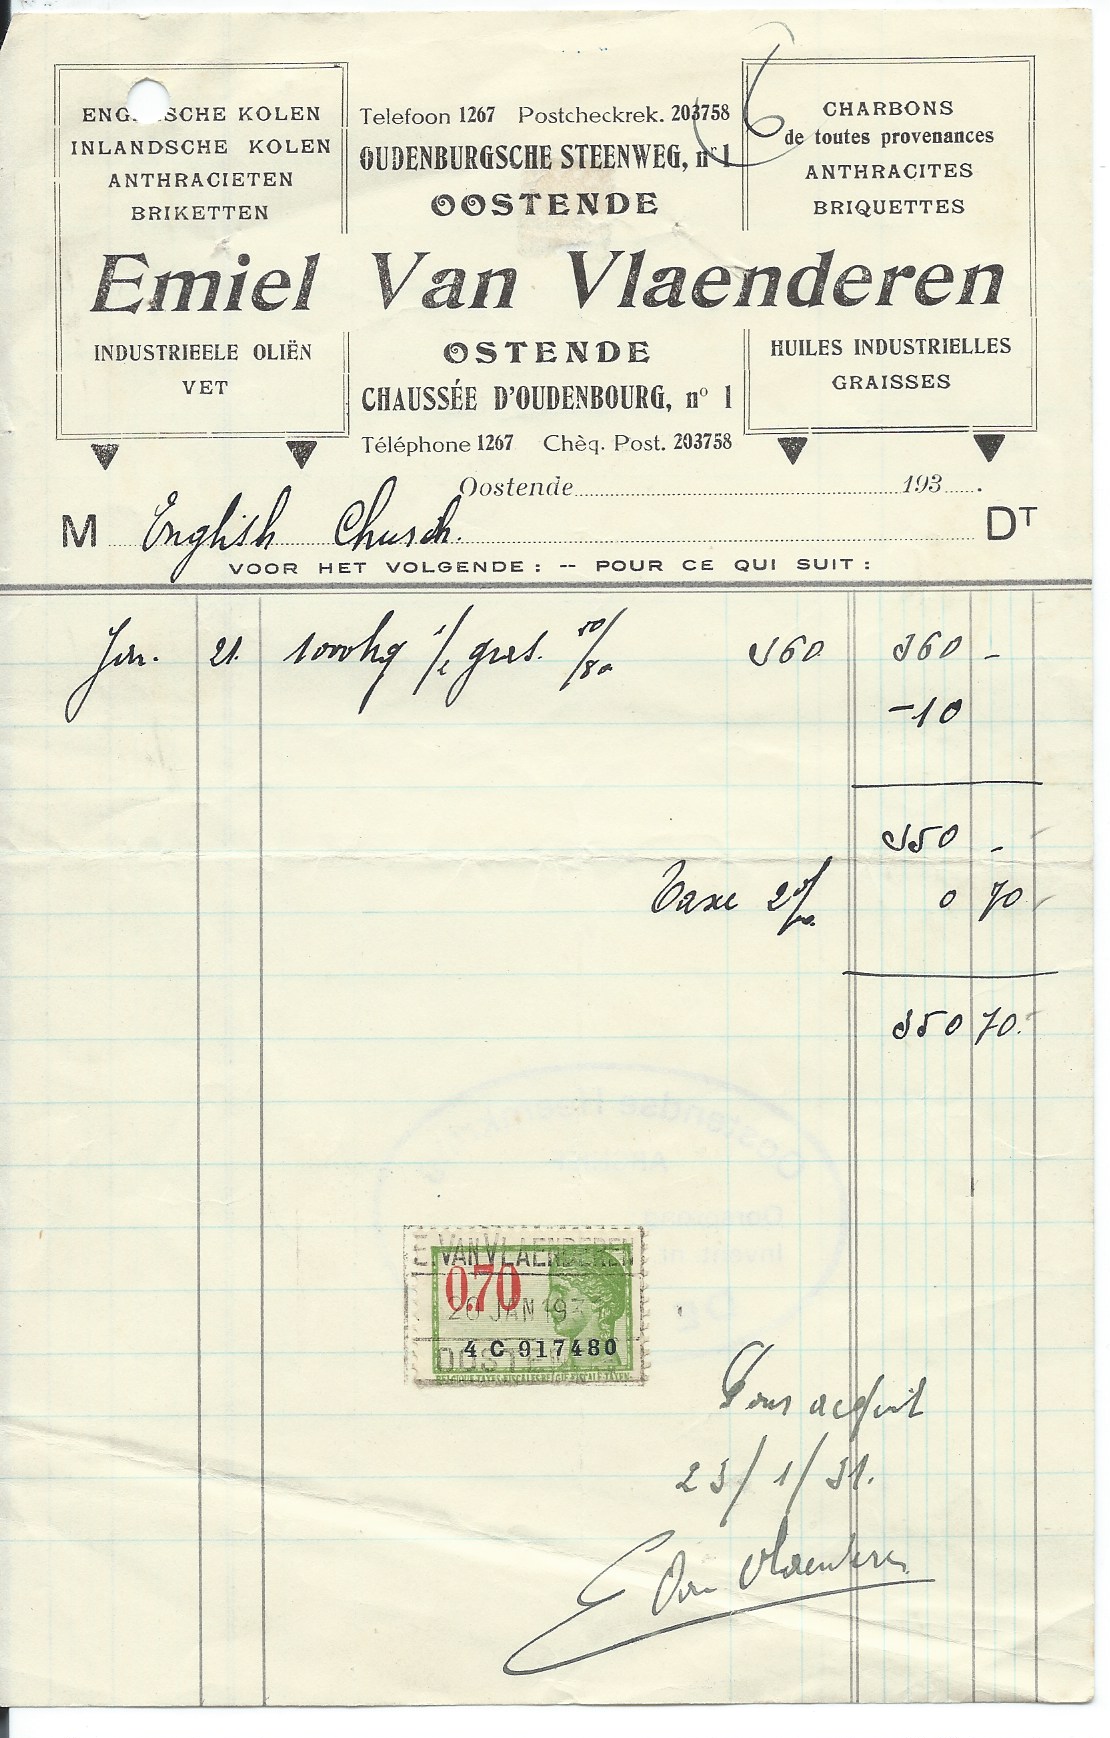 6
ENG SCHE KOLEN
INLANDSCHE KOLEN
ANTHRACIETEN
BRIKETTEN
Telefoon 1267 Postcheckrek. 203758
OUDENBURGSCHE STEENWEG, nr 1
OOSTENDE
CHARBONS
de toutes provenances
ANTHRACITES
BRIQUETTES
Emiel Van Vlaenderen
INDUSTRIEELE OLIËN
VET
OSTENDE
CHAUSSÉE D'OUDENBOURG, no 1
Téléphone 1267 Chèq. Post. 203758
HUILES INDUSTRIELLES
GRAISSES
Oostende 193 .
M English Church. DT
VOOR HET VOLGENDE : -- POUR CE QUI SUIT :
Jan. 21. 1000kg 1/2 gras. 50/80 360 360 -
-10
350 -
Taxe 2‰ 0 70
350 70.
E. VAN VLAENDEREN
0.70
20 JAN 193
4 C 917480
BELGIQUE-TAXES FISCALES BELGIE-FISCALE TAXEN
Pour acquit
23/1/31.
E Van Vlaenderen